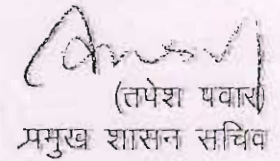 (तपेश पवार)
प्रमुख शासन सचिव